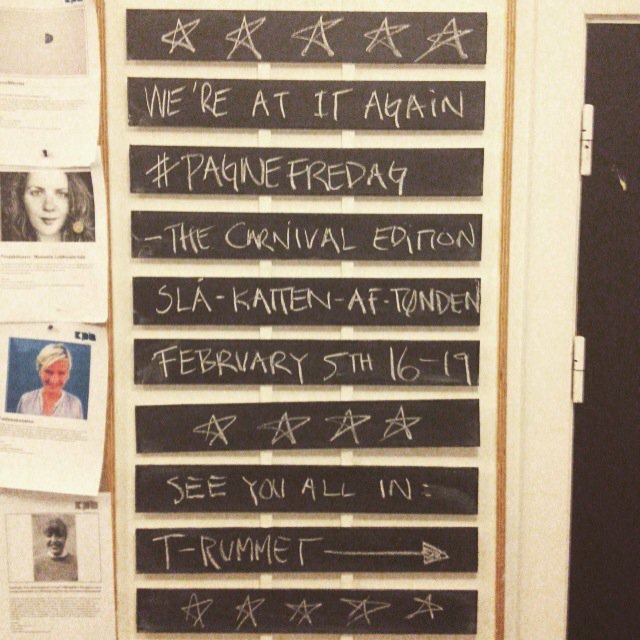 WE'RE AT IT AGAIN
#PAGNEFREDAG
-THE CARNIVAL EDITION
SLÅ-KATTEN-AF-TØNDEN
FEBRUARY 5TH 16-19
SEE YOU ALL IN:
T-RUMMET